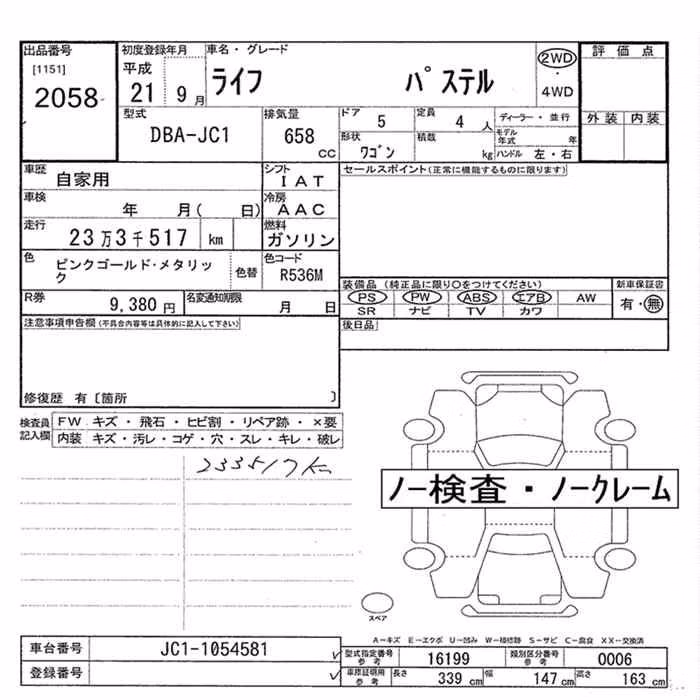 出品番号
[1151]
2058
初度登録年月
平成
21 9 月
車名・グレード
ライフ パステル
2WD
・
4WD
評価点
外装 内装
型式
DBA-JC1
排気量
658
CC
ドア 5
定員 4 人
形状 ワゴン
積載 kg
ディーラー・並行
モデル年式 年
ハンドル 左・右
車歴
自家用
シフト
IAT
車検
年 月( 日)
冷房
AAC
走行
23万3千517 km
燃料
ガソリン
色
ピンクゴールド・メタリック
色替
色コード
R536M
R券
9,380 円
名変通知期限
月 日
セールスポイント(正常に機能するものに限ります)
装備品(純正品に限り○をつけてください)
PS PW ABS エアB AW
SR ナビ TV カワ
新車保証書
有・無
後日品
注意事項申告欄(不具合内容等は具体的に記入して下さい)
修復歴 有[箇所 ]
検査員記入欄
FW キズ・飛石・ヒビ割・リペア跡・×要
内装 キズ・汚レ・コゲ・穴・スレ・キレ・破レ
233517km
ノー検査・ノークレーム
スペア
A－キズ E－エクボ U－凹み W－補修跡 S－サビ C－腐食 XX－交換済
車台番号
JC1-1054581
登録番号
型式指定番号
参考
16199
類別区分番号
参考
0006
車庫証明用
参考
長さ 339 cm
幅 147 cm
高さ 163 cm